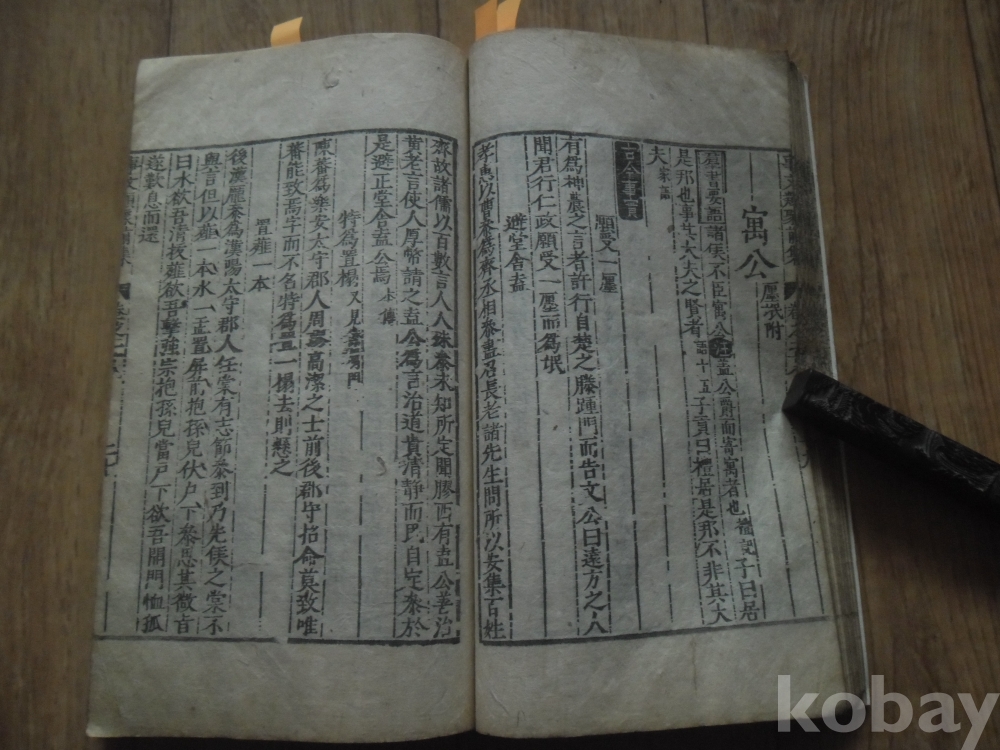 寓公
廛氓附
諸侯不臣寓公註盖公爵而寄寓者也
子曰居
是邦也事其大夫之賢者
語十五子貢曰禮居是邦不非其大
夫家語
古今事實
願受一廛
有爲神農之言者許行自楚之滕踵門而告文公曰遠方之人
聞君行仁政願受一廛而爲氓
避堂舍盖
孝惠以曹參爲齊丞相參盡召長老諸先生問所以安集百姓
齊故諸儒以百數言人人殊參未知所定聞膠西有盖公善治
黄老言使人厚幣請之盖公爲言治道貴清静而民自定參於
是避正堂舍盖公焉本傳
特爲置榻
又見
陳蕃爲樂安太守郡人周璆高潔之士前後郡守招命莫致唯
蕃能致焉字而不名特爲置一榻去則懸之
置薤一本
後漢龐參爲漢陽太守郡人任棠有志節參到乃先候之棠不
與言但以薤一本水一盂置屏前抱孫兒伏户下參思其微旨
曰水欲吾清拔薤欲吾擊強宗抱孫兒當户下欲吾開門恤孤
遂歎息而還
kobay